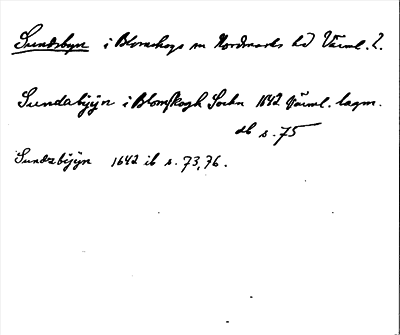 Sundsbyn i Blomskogs sn Nordmarks hd Värml. l.
Sundabÿÿn i Blomskogh Sochn 1642 Värml. lagm.
db s. 75
Sundzbÿÿn 1642 ib s. 73, 76.